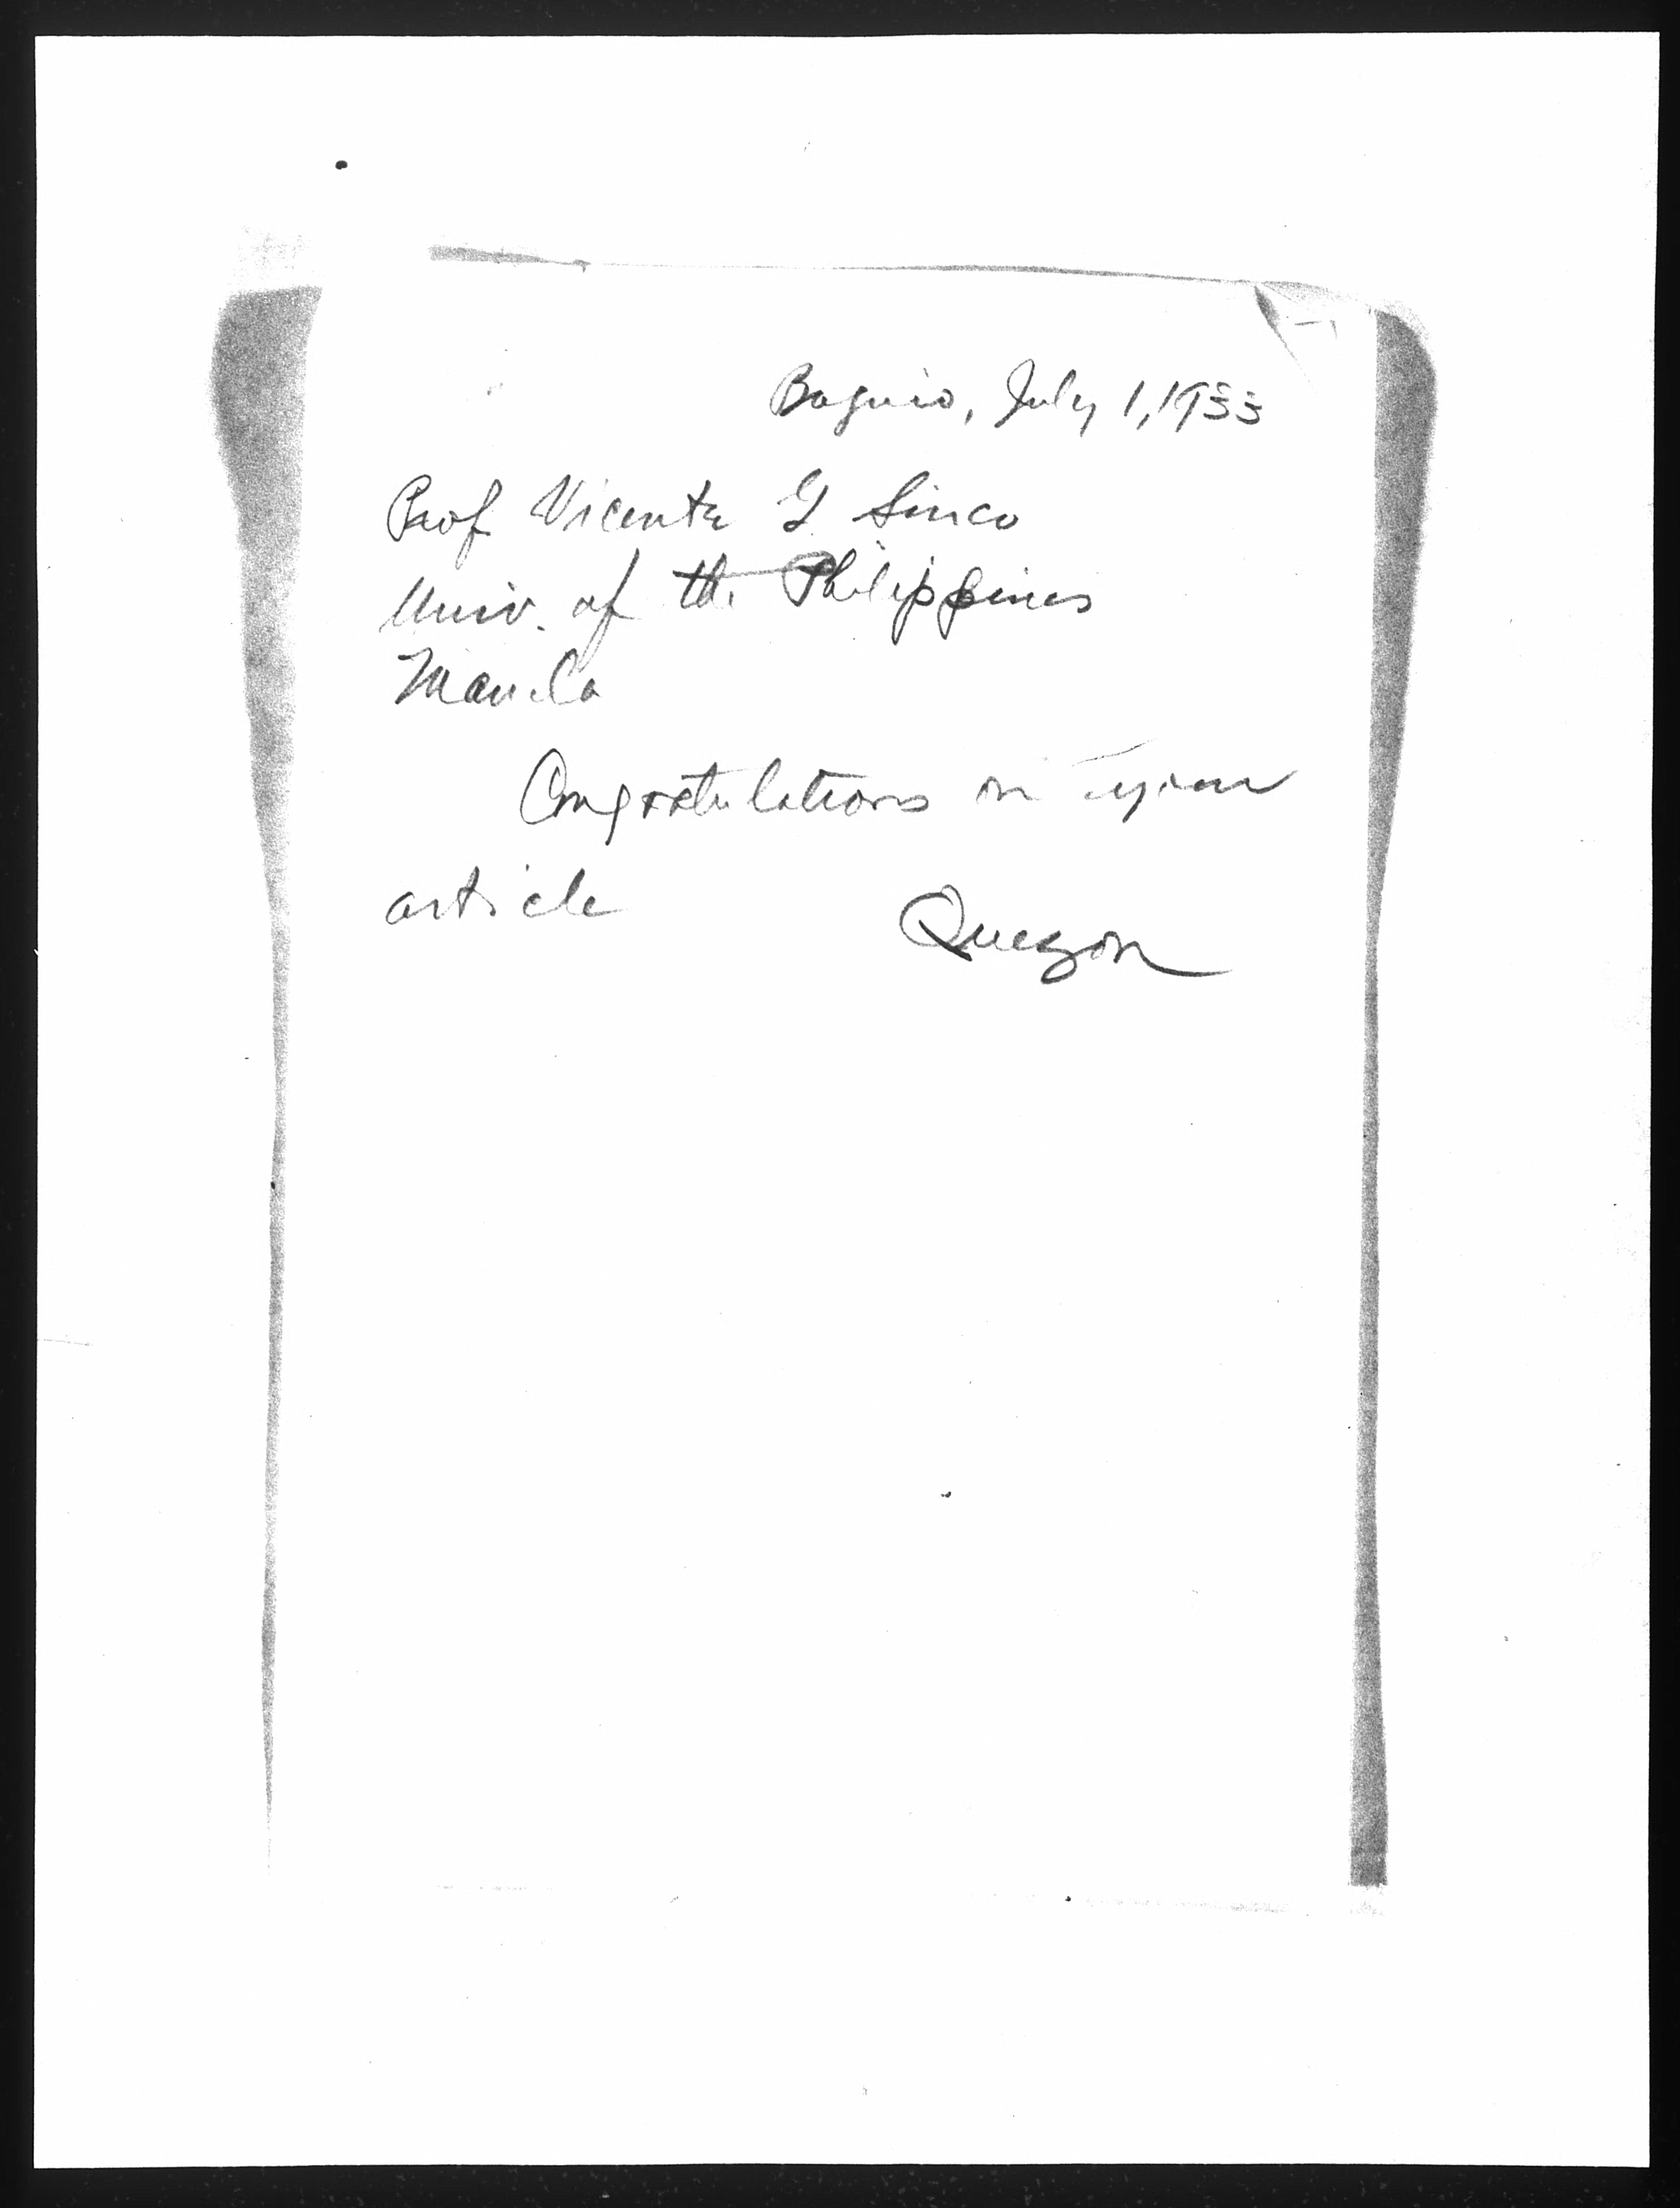 Baguio, July 1, 1933
Prof Vicente G Sinco
Univ. of the Philippines
Manila
Congratulations on your
article
Quezon